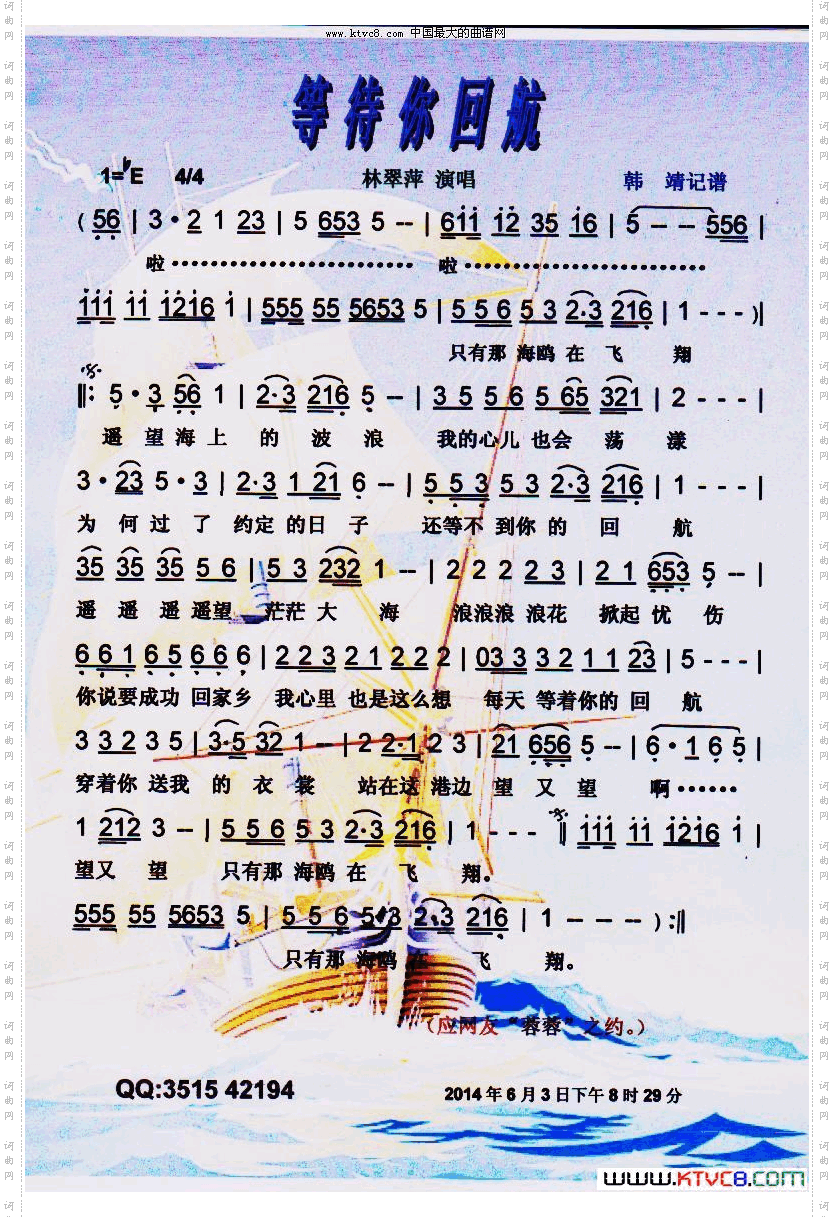 www.ktvc8.com 中国最大的曲谱网
等待你回航
1=♭E 4/4 林翠萍 演唱 韩 靖记谱
( 56 | 3·2 1 23 | 5 653 5 -- | 611 12 35 16 | 5 -- 556 |
啦······················· 啦·······················
111 11 1216 1 | 555 55 5653 5 | 556 53 2·3 216 | 1 --- )‖
只有那 海鸥 在 飞 翔
‖: 5·3 56 1 | 2·3 216 5 -- | 35 56 5 65 321 | 2 --- |
遥 望 海 上 的 波 浪 我的心儿 也会 荡 漾
3·23 5·3 | 2·3 1 21 6 -- | 5 53 53 2·3 216 | 1 --- |
为 何 过 了 约定 的日 子 还等不 到你 的 回 航
35 35 35 56 | 53 232 1 -- | 22 2 23 | 21 653 5 -- |
遥 遥 遥 遥望 茫茫 大 海 浪浪浪 浪花 掀起 忧 伤
661 65 66 6 | 223 21 22 2 | 033 32 11 23 | 5 --- |
你说要成功 回家乡 我心里 也是这么想 每天 等着你的 回 航
3 32 35 | 3·5 32 1 -- | 2 2·1 23 | 21 656 5 -- | 6·1 6 5 |
穿着你 送我 的 衣 裳 站在这 港边 望 又 望 啊······
1 212 3 -- | 556 53 2·3 216 | 1 --- ‖ 111 11 1216 1 |
望又 望 只有那 海鸥 在 飞 翔。
555 55 5653 5 | 556 53 2·3 216 | 1 --- ) :‖
只有那 海鸥 在 飞 翔。
(应网友“蓉蓉”之约。)
QQ:3515 42194 2014 年 6 月 3 日下午 8 时 29 分
www.KTVC8.com